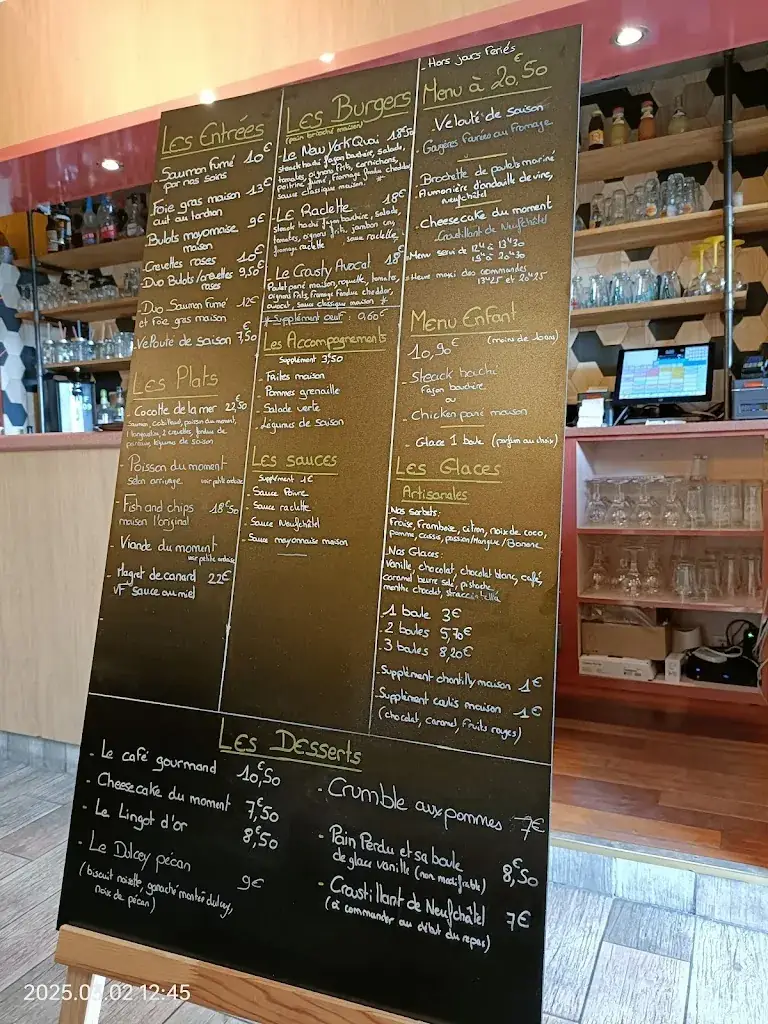 Les Entrées
- Saumon Fumé 10€
par nos soins
- Foie gras maison 13€
cuit au torchon
- Bulots mayonnaise 9€
maison
- Crevettes roses 10€
- Duo Bulots/crevettes 9,50€
roses
- Duo Saumon Fumé 12€
et foie gras maison
- Velouté de saison 7,50
Les Plats
- Cocotte de la mer 22,50
Saumon, cabillaud, poisson du moment,
1 langoustine, 2 crevettes, fondue de
poireaux, légumes de saison
- Poisson du moment
selon arrivage voir petite ardoise
- Fish and chips 18€50
maison l'original
- Viande du moment
voir petite ardoise
- Magret de canard 22€
VF sauce au miel
Les Burgers
(pain brioché maison)
- Le New York Quai 18€50
steack haché façon bouchère, salade,
tomates, oignons frits, cornichons,
poitrine fumé, fromage fondu cheddar,
sauce classique maison *
- Le Raclette 18€
steack haché façon bouchère, salade,
tomates, oignons frits, jambon cru
fromage raclette sauce raclette
- Le Crousty Avocat 18€
Poulet pané maison, roquette, tomates,
oignons frits, fromage fondue cheddar,
avocat, sauce classique maison *
* Supplément oeuf : 0,60€
Les Accompagnements
Supplément 3,50
- Frites maison
- Pommes grenaille
- Salade verte
- Légumes de saison
Les sauces
Supplément 1€
- Sauce Poivre
- Sauce raclette
- Sauce Neufchâtel
- Sauce mayonnaise maison
- Hors jours Feriés
Menu à 20€50
- Velouté de saison
Gougères Fourrées au fromage
- Brochette de poulets mariné
Aumonière d'andouille de vire,
neufchâtel
- Cheesecake du moment
Croustillant de Neufchâtel
- Menu servi de 12H à 13H30
19H à 20H30
- Heure maxi des commandes
13H25 et 20H25
Menu Enfant
10,90€ (moins de 10ans)
- Steack haché
Façon bouchère
ou
- Chicken pané maison
- Glace 1 boule (parfum au choix)
Les Glaces
Artisanales
- Nos Sorbets :
Fraise, framboise, citron, noix de coco,
pomme, cassis, passion/Mangue/Banane
- Nos Glaces :
Vanille, chocolat, chocolat blanc, café,
caramel beurre salé, pistache,
menthe chocolat, straccistella
1 boule 3€
2 boules 5,70€
3 boules 8,20€
- Supplément chantilly maison 1€
- Supplément coulis maison 1€
(chocolat, caramel, fruits rouges)
Les Desserts
- Le café gourmand 10€,50
- Cheesecake du moment 7€,50
- Le Lingot d'or 8€,50
- Le Dulcey pécan 9€
(biscuit noisette, ganache montée dulcey,
noix de pécan)
- Crumble aux pommes 7€
- Pain Perdu et sa boule
de glace vanille (non modifiable) 8€,50
- Croustillant de Neufchâtel 7€
(à commander au début du repas)
12:45